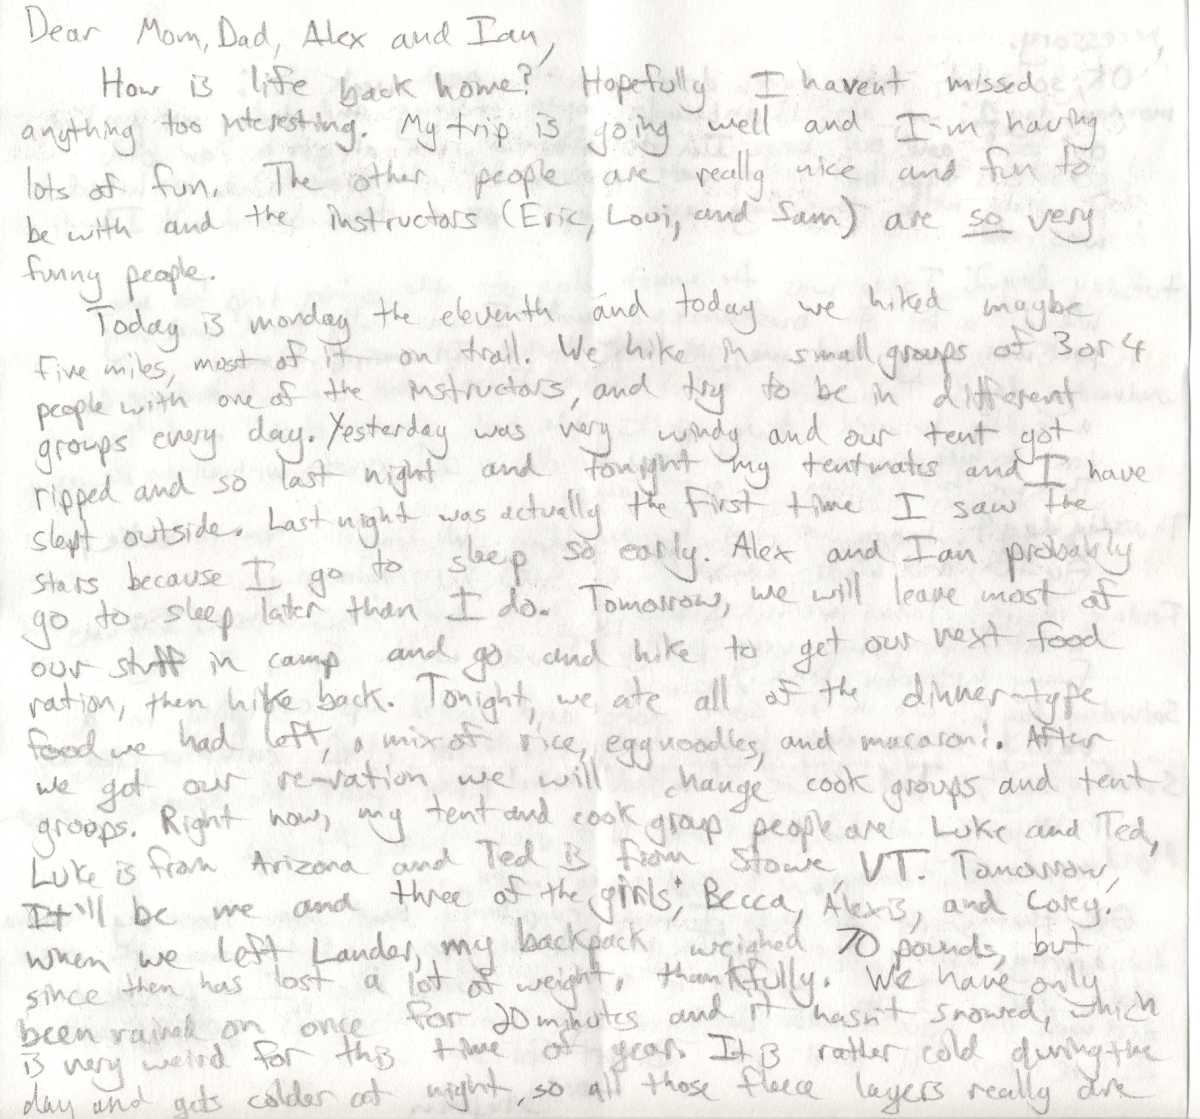 Dear Mom, Dad, Alex and Ian,
How is life back home? Hopefully I havent missed
anything too interesting. My trip is going well and I'm having
lots of fun. The other people are really nice and fun to
be with and the instructors (Eric, Loui, and Sam) are so very
funny people.
Today is monday the eleventh and today we hiked maybe
five miles, most of it on trail. We hike in small groups of 3 or 4
people with one of the instructors, and try to be in different
groups every day. Yesterday was very windy and our tent got
ripped and so last night and tonight my tentmates and I have
slept outside. Last night was actually the first time I saw the
stars because I go to sleep so early. Alex and Ian probably
go to sleep later than I do. Tomorrow, we will leave most of
our stuff in camp and go and hike to get our next food
ration, then hike back. Tonight, we ate all of the dinner-type
food we had left, a mix of rice, egg noodles, and macaroni. After
we got our re-ration we will change cook groups and tent
groops. Right now, my tent and cook group people are Luke and Ted,
Luke is from Arizona and Ted is from Stowe VT. Tomorrow,
It'll be me and three of the girls; Becca, Alexis, and Corey.
when we left Lander, my backpack weighed 70 pounds, but
since then has lost a lot of weight, thankfully. We have only
been rained on once for 20 minutes and it hasn't snowed, which
is very weird for this time of year. It is rather cold during the
day and gets colder at night, so all those fleece layers really are